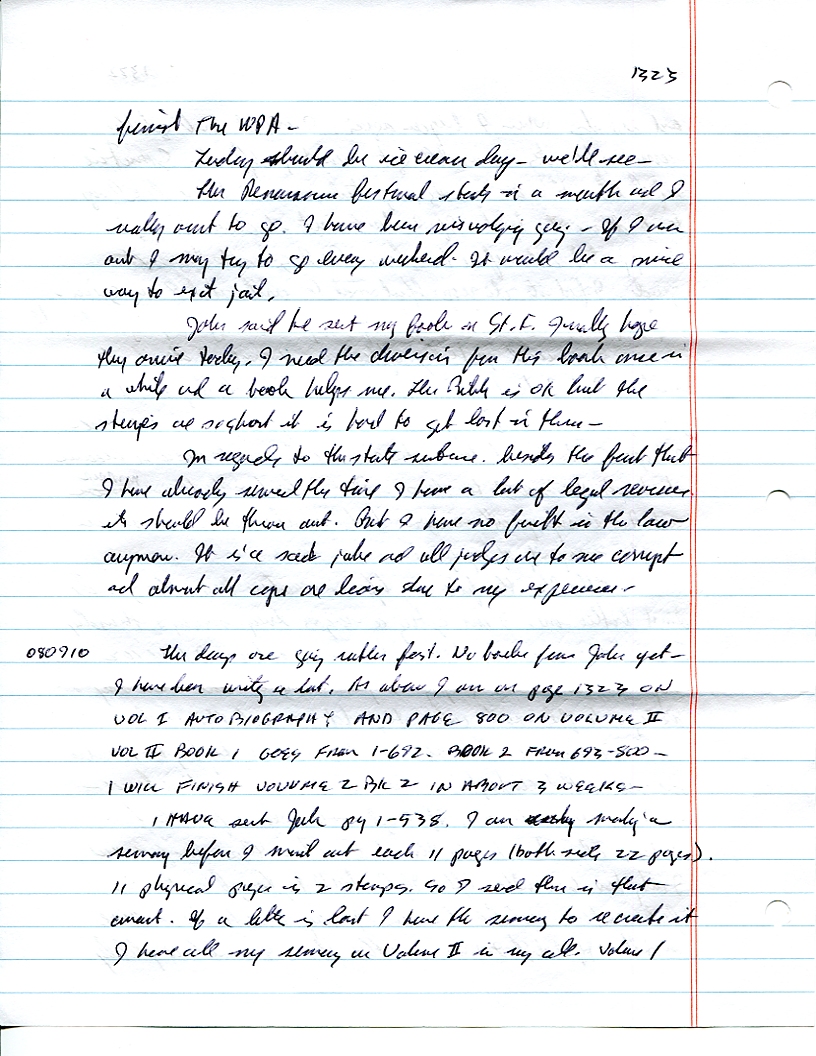 1323
finish The WPA -
Today should be ice cream day - we'll see -
The Renaissance festival starts in a month ad I
really want to go. I have been visualizing going - If I am
out I may try to go every weekend. It would be a nice
way to exit jail.
John said he sent my book on St. F. I really hope
they arrive today. I need the diversion from this book once in
a while ad a book helps me. The Bible is OK but the
stories are so short it is hard to get lost in them -
In regards to the state sentence. besides the fact that
I have already served the time I have a lot of legal reasons
it should be thrown out. But I have no faith in the law
anymore. It is a sad joke ad all judges are to me corrupt
ad almost all cops are liars due to my experience -
080910 The days are going rather fast. No books from John yet -
I have been writing a lot. As above I am on page 1323 ON
VOL I AUTOBIOGRAPHY AND PAGE 800 ON VOLUME II
VOL II BOOK 1 GOES FROM 1-692. BOOK 2 FROM 693-800 -
I WILL FINISH VOLUME 2 BK 2 IN ABOUT 3 WEEKS -
I HAVE sent John pg 1-538. I am making a
summary before I mail out each 11 pages (both sides 22 pages).
11 physical pages is 2 stamps. So I send them in that
amount. If a letter is lost I have the summary to recreate it
I have all my summary on Volume II in my cell. Volume 1